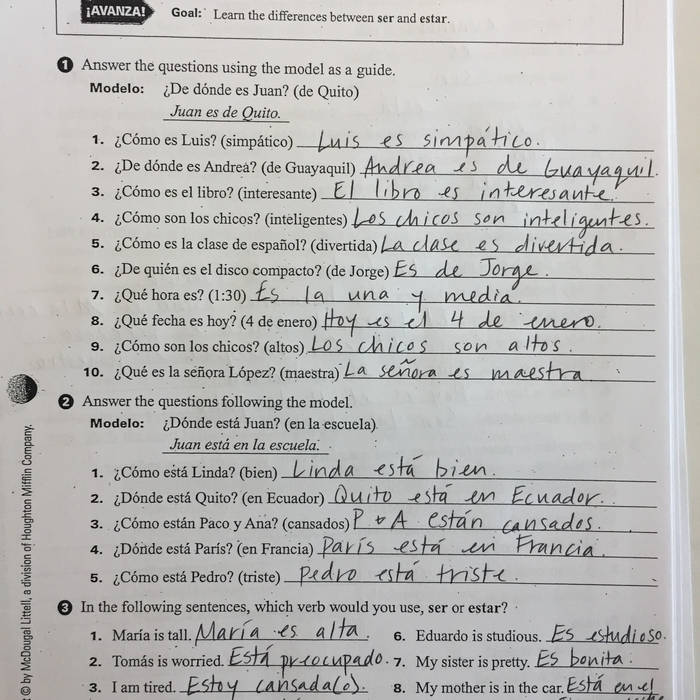 ¡AVANZA! Goal: Learn the differences between ser and estar.
1 Answer the questions using the model as a guide.
Modelo: ¿De dónde es Juan? (de Quito)
Juan es de Quito.
1. ¿Cómo es Luis? (simpático) Luis es simpático.
2. ¿De dónde es Andrea? (de Guayaquil) Andrea es de Guayaquil.
3. ¿Cómo es el libro? (interesante) El libro es interesante.
4. ¿Cómo son los chicos? (inteligentes) Los chicos son inteligentes.
5. ¿Cómo es la clase de español? (divertida) La clase es divertida.
6. ¿De quién es el disco compacto? (de Jorge) Es de Jorge.
7. ¿Qué hora es? (1:30) Es la una y media.
8. ¿Qué fecha es hoy? (4 de enero) Hoy es el 4 de enero.
9. ¿Cómo son los chicos? (altos) Los chicos son altos.
10. ¿Qué es la señora López? (maestra) La señora es maestra
2 Answer the questions following the model.
Modelo: ¿Dónde está Juan? (en la escuela)
Juan está en la escuela.
1. ¿Cómo está Linda? (bien) Linda está bien.
2. ¿Dónde está Quito? (en Ecuador) Quito está en Ecuador.
3. ¿Cómo están Paco y Ana? (cansados) P & A están cansados.
4. ¿Dónde está París? (en Francia) París está en Francia.
5. ¿Cómo está Pedro? (triste) Pedro está triste.
3 In the following sentences, which verb would you use, ser or estar?
1. María is tall. María es alta. 6. Eduardo is studious. Es estudioso.
2. Tomás is worried. Está preocupado. 7. My sister is pretty. Es bonita.
3. I am tired. Estoy cansada(o). 8. My mother is in the car. Está en el
© by McDougal Littell, a division of Houghton Mifflin Company.